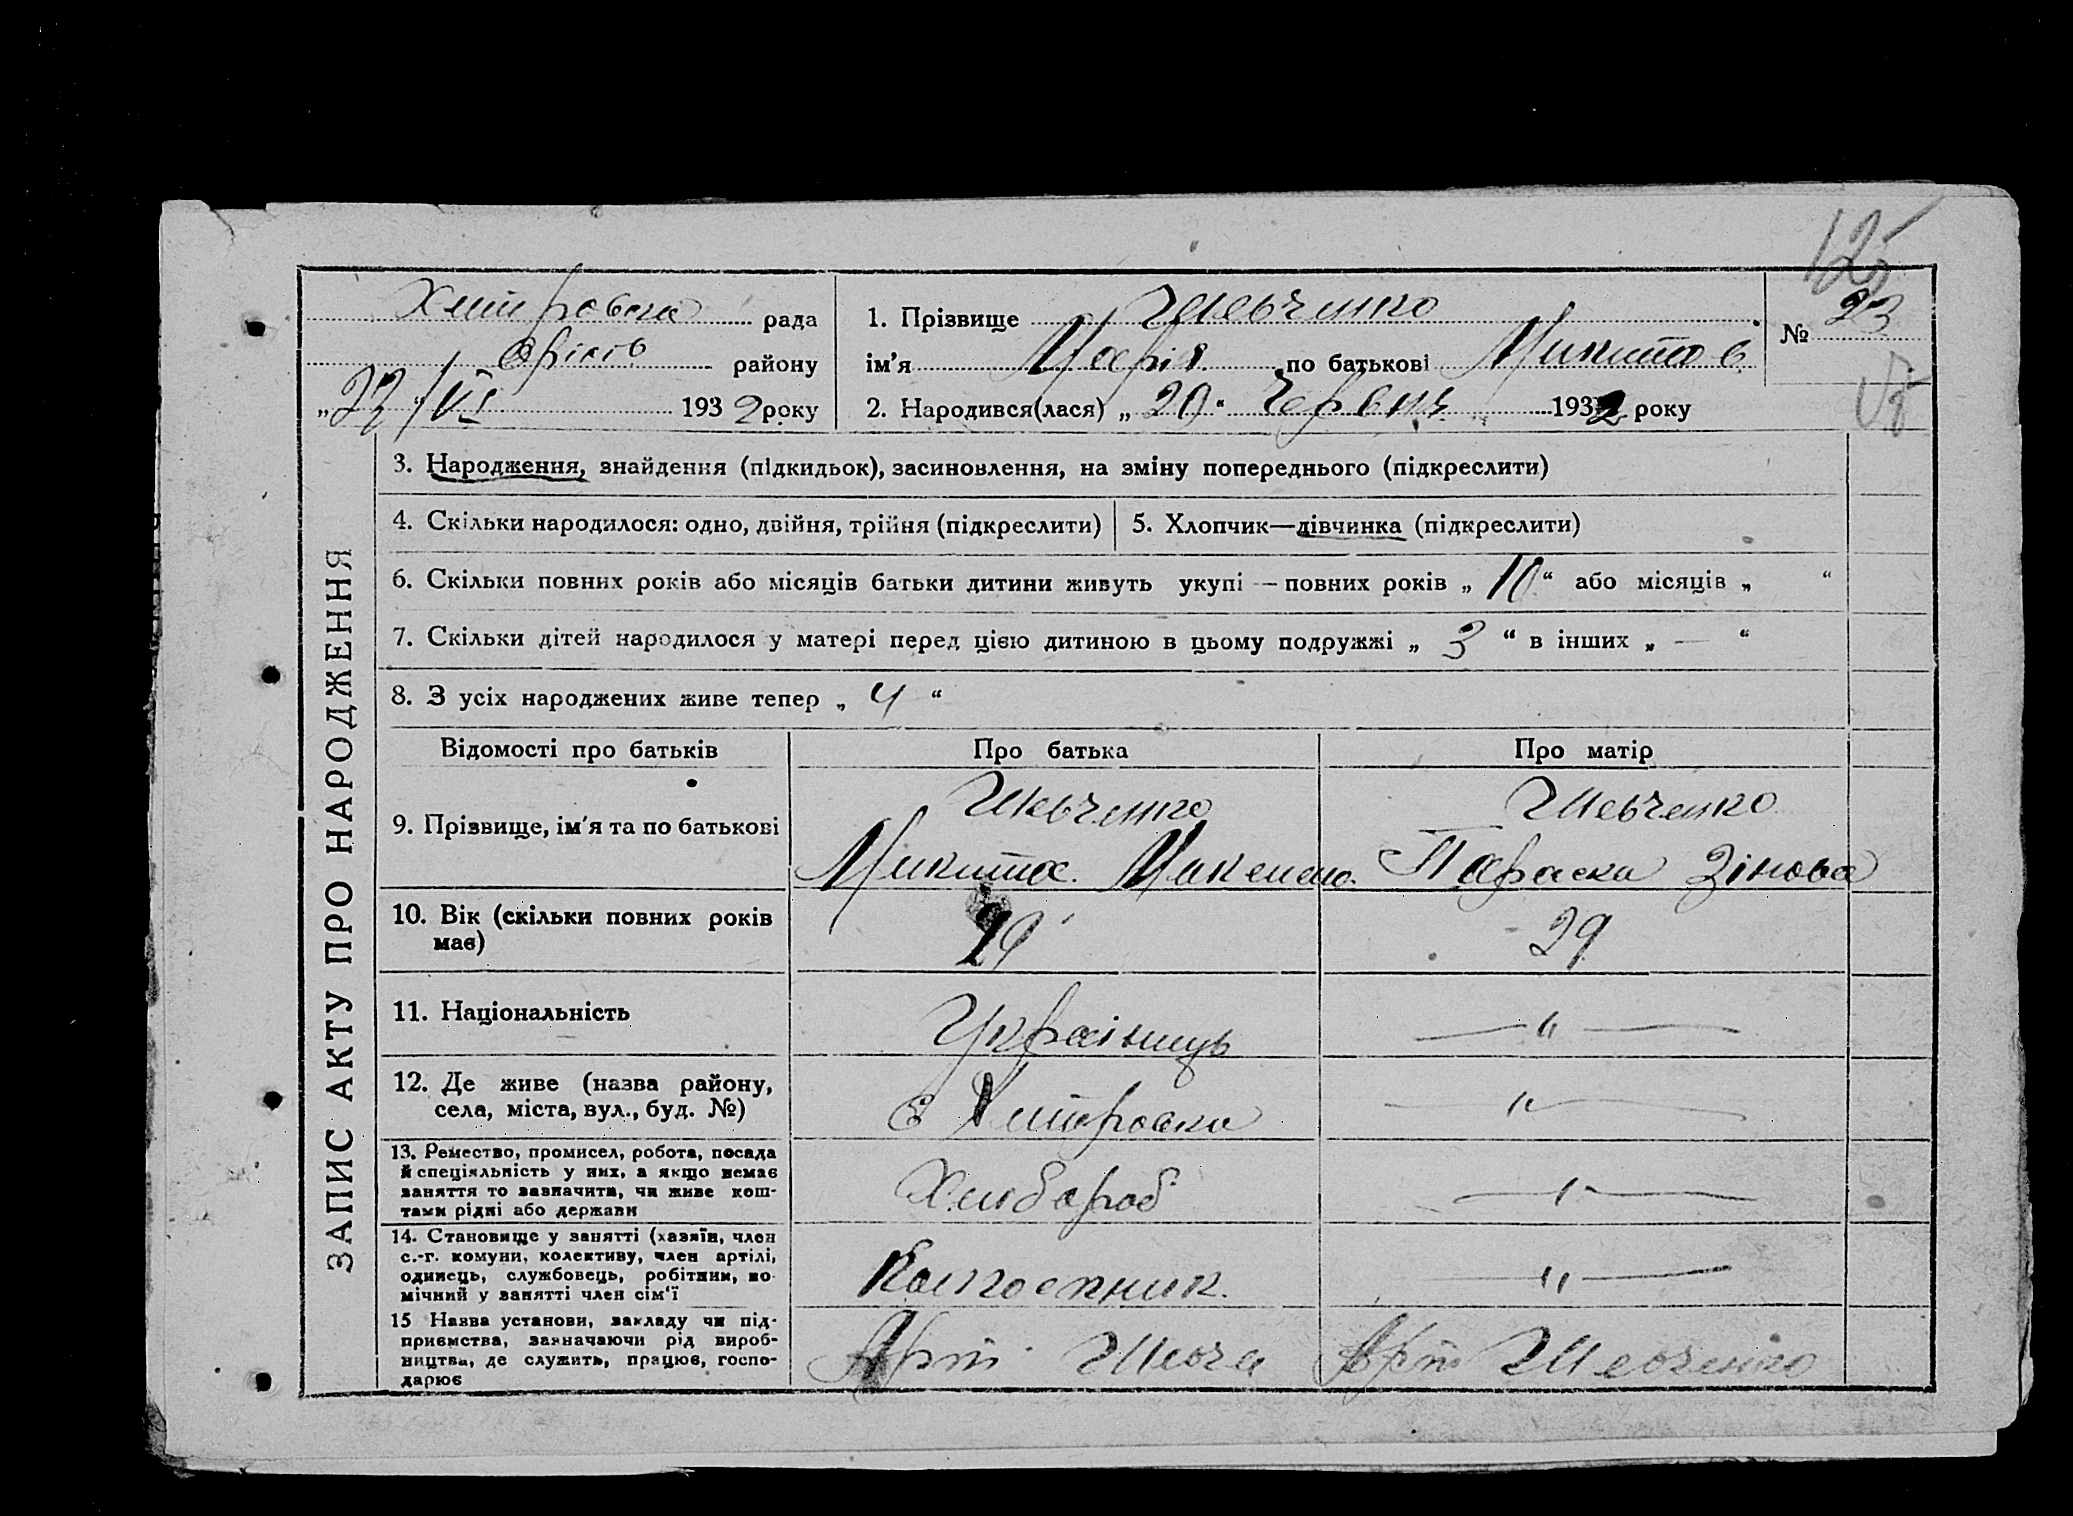 125
Хитровска рада
району
„22/VI 1932 року
1. Прізвище Шевченко
ім'я Марія по батькові Микитов.
2. Народився(лася) „20“ Червня 1932 року
№ 23
ЗАПИС АКТУ ПРО НАРОДЖЕННЯ
3. Народження, знайдення (підкидьок), засиновлення, на зміну попереднього (підкреслити)
4. Скільки народилося: одно, двійня, трійня (підкреслити)
5. Хлопчик—дівчинка (підкреслити)
6. Скільки повних років або місяців батьки дитини живуть укупі — повних років „ 10 “ або місяців „ “
7. Скільки дітей народилося у матері перед цією дитиною в цьому подружжі „ 3 “ в інших „ — “
8. З усіх народжених живе тепер „ 4 “
Відомості про батьків Про батька Про матір
9. Прізвище, ім'я та по батькові
Шевченко
Микита Максимо.
Шевченко
Параска Зінова
10. Вік (скільки повних років
має)
29
29
11. Національність
Українець
— " —
12. Де живе (назва району,
села, міста, вул., буд. №)
с Хитровка
— " —
13. Ремество, промисел, робота, посада
й спеціяльність у них, а якщо немає
заняття то зазначити, чи живе кош-
тами рідні або держави
Хлібороб
— " —
14. Становище у занятті (хазяїн, член
с.-г. комуни, колективу, член артілі,
одинець, службовець, робітник, по-
мічний у занятті член сім'ї
Колгоспник.
— " —
15 Назва установи, закладу чи під-
приємства, зазначаючи рід вироб-
ництва, де служить, працює, госпо-
дарює
Арт. Шевче
Арт Шевченко